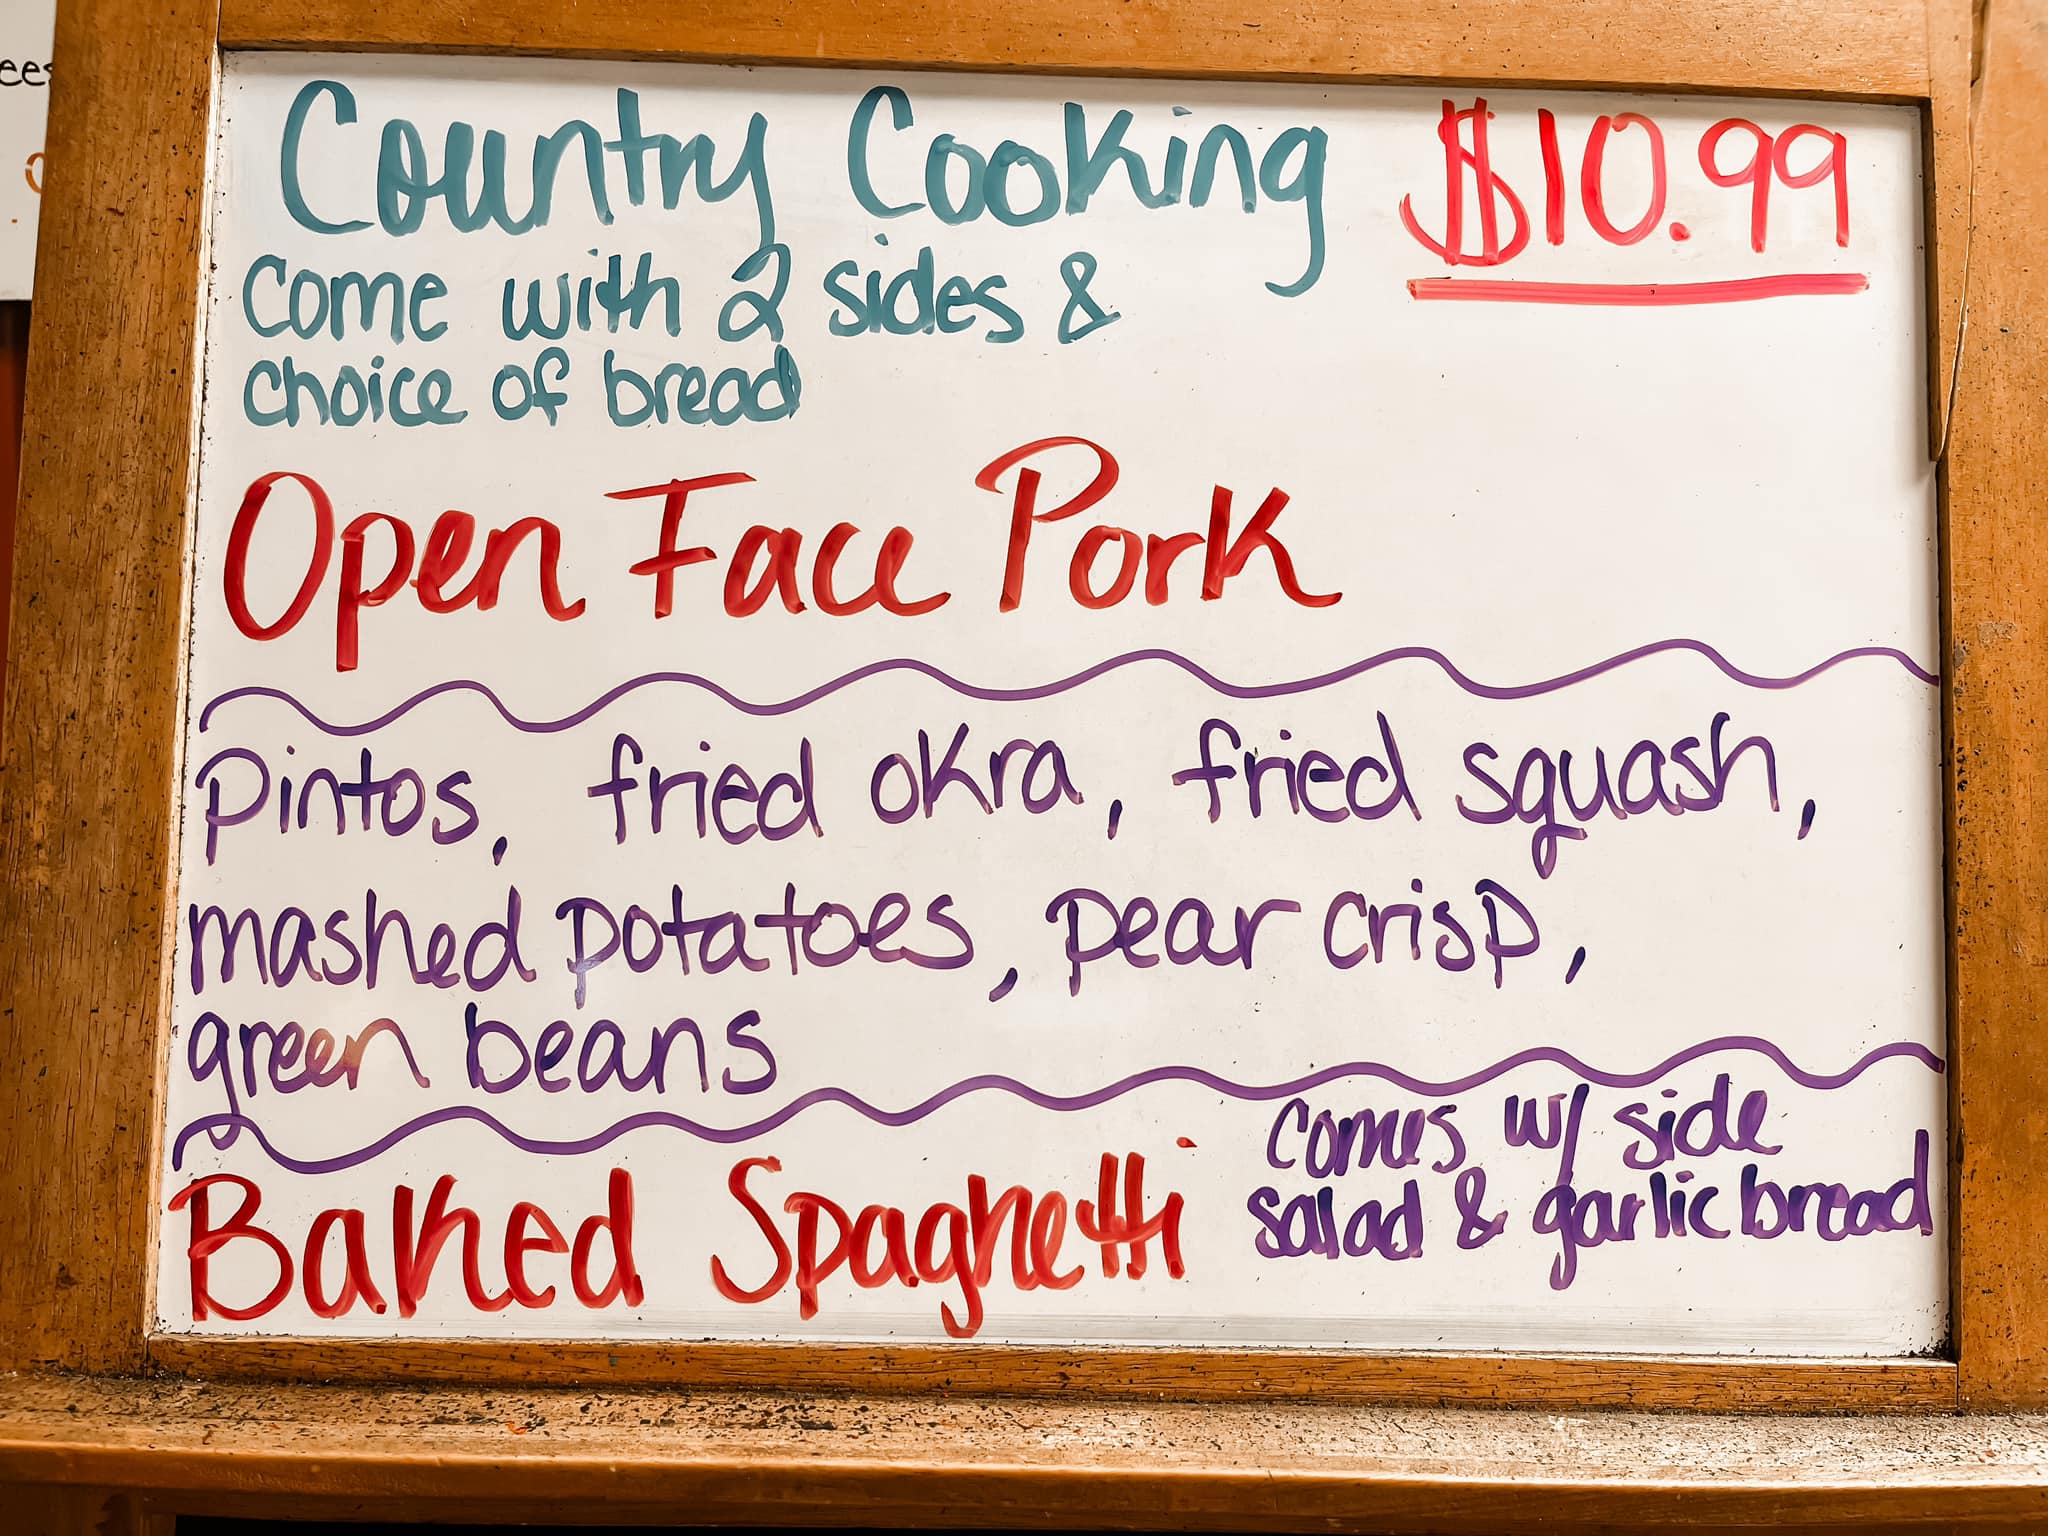 ees
Country Cooking $10.99
Come with 2 sides &
choice of bread
Open Face Pork
Pintos, fried okra, fried squash,
mashed potatoes, pear crisp,
green beans
Comes w/ side
salad & garlic bread
Baked Spaghetti